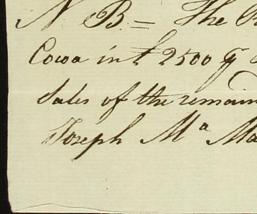 N B = The
Cowa in £ 2500
Sales of the remain
Joseph Mª Ma